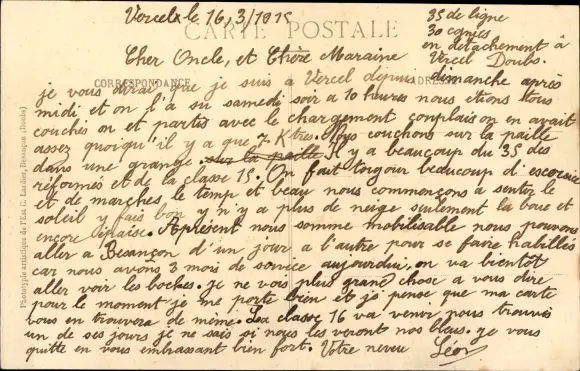 Vercel le 16, 3/1915
35 de ligne
30 cgnies
en détachement à
Vercel Doubs.
CARTE POSTALE
Cher Oncle, et Chère Maraine
CORRESPONDANCE
ADRESSE
je vous dirai que je suis a Vercel depuis dimanche après
midi et on l'à su samedi soir a 10 heures nous etions tous
couchés on et partis avec le chargement conplais on en avait
assez quoiqu'il y a que 7 Ktres. Nous couchons sur la paille
dans une grange. sur la paille Il y a beaucoup du 35 des
réformés et de la classe 15. On fait toujour beaucoup d'escounie
et de marches le temp et beau nous commençons a sentir le
soleil y fais bon y n'y a plus de neige seulement la boue et
encore épaisse. Apresent nous somme mobilisable nous pouvons
aller a Besançon d'un jour a l'autre pour se faire habillés
car nous avons 3 mois de service aujourdui. on va bientot
aller voir les boches. Je ne vous plus grand chose a vous dire
pour le moment je me porte bien et je pense que ma carte
vous en trouvera de mème. La classe 16 va venir nous trouvés
un de ses jours je ne sais si nous les veront nos bleus. je vous
quitte en vous embrassant bien fort. Votre neveu Léon
Phototypie artistique de l'Est C. Lardier, Besançon (Doubs)